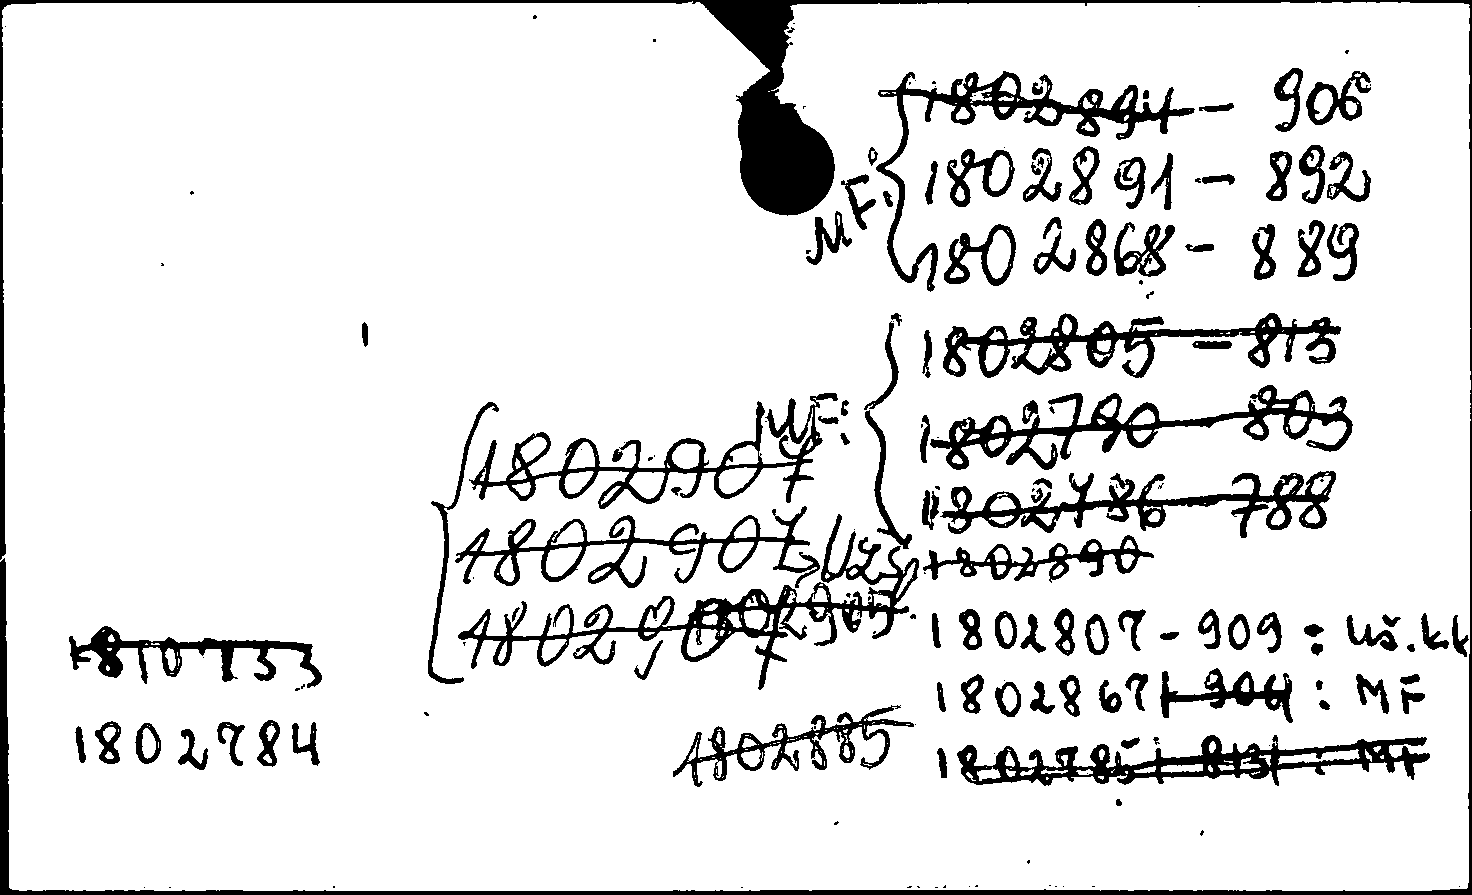 1802894 - 906
1802891 - 892
MF:
1802868 - 889
1802805 - 813
MF:
1802790 - 803
1802907
1802786 - 788
1802907
1802890
1802905
1802907
1802807 - 909 : Uš.kk
1810733
1802867 - 904 : MF
1802784
1802885
1802785 - 813 : MF